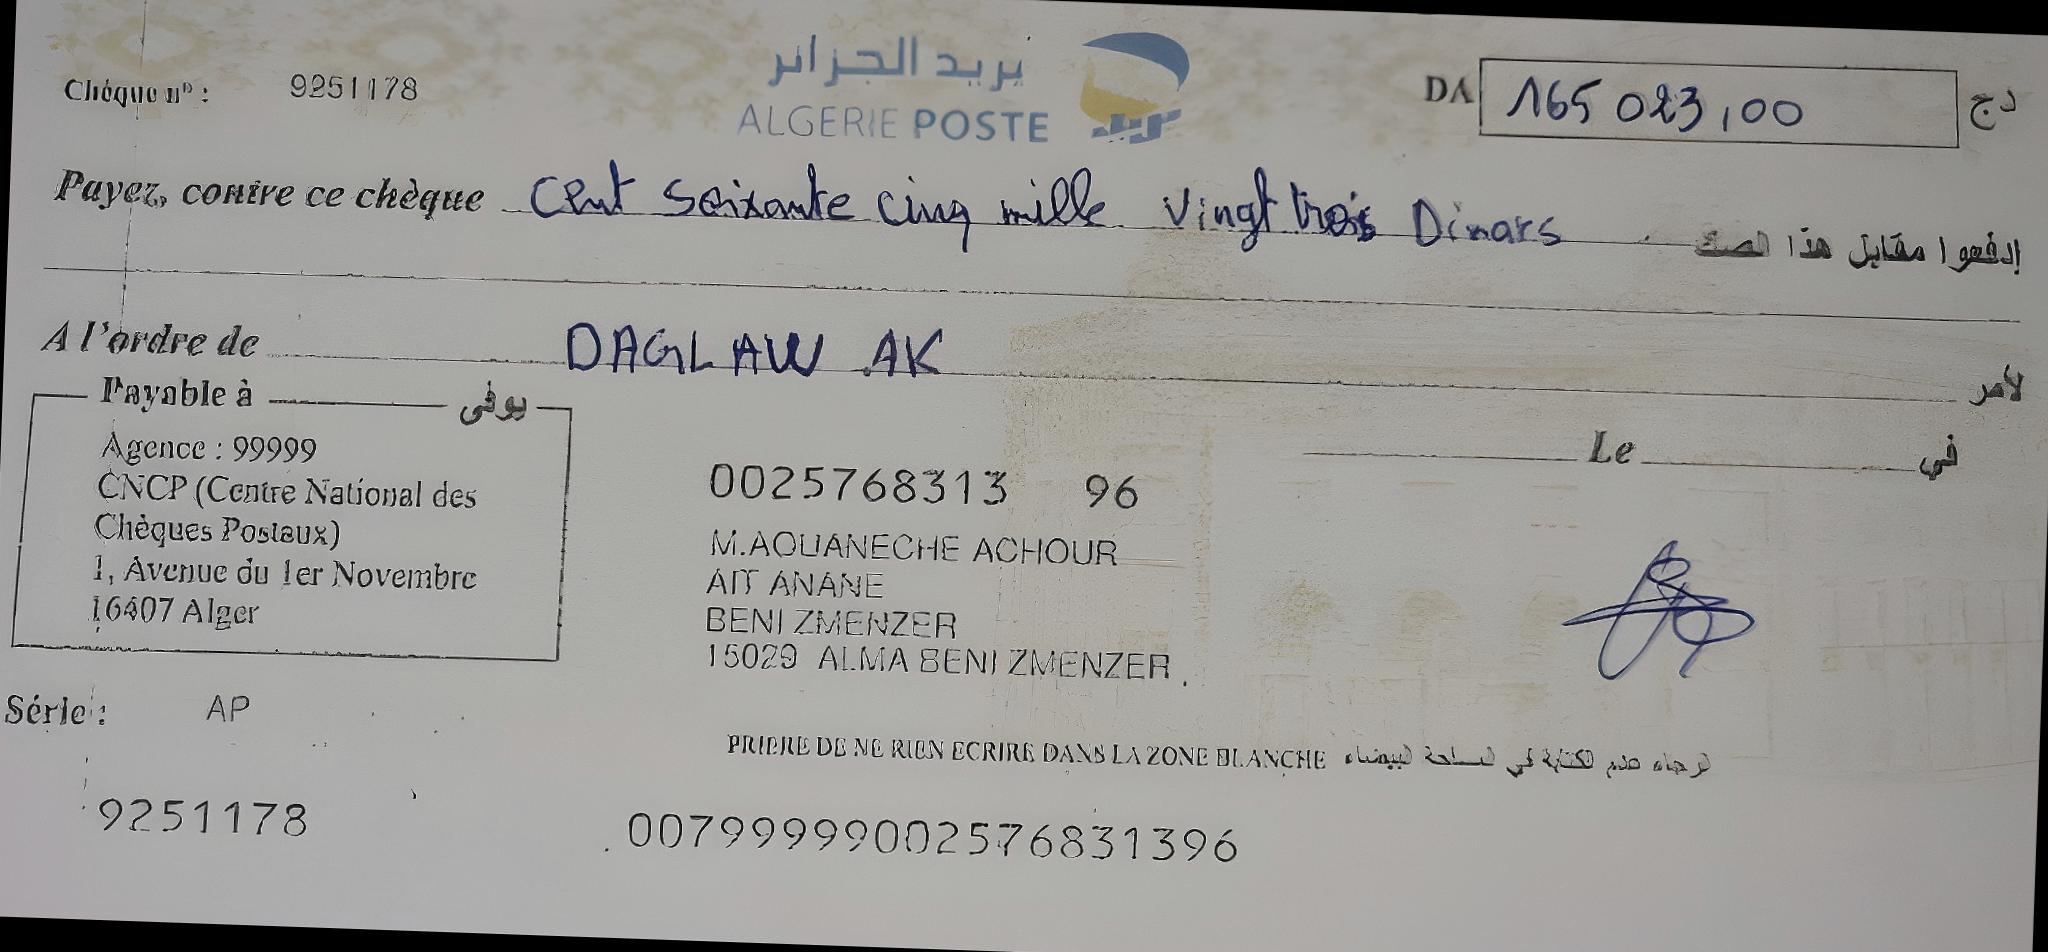 بريد الجزائر
ALGERIE POSTE
Chèque n° : 9251178
DA 165 023,00 دج
Payez, contre ce chèque Cent Soixante cinq mille Vingt trois Dinars إدفعوا مقابل هذا الصك
A l'ordre de DAGLAW AK لأمر
Payable à يوفى
Agence : 99999
CNCP (Centre National des
Chèques Postaux)
1, Avenue du 1er Novembre
16407 Alger
Le في
0025768313 96
M.AOUANECHE ACHOUR
AIT ANANE
BENI ZMENZER
15029 ALMA BENI ZMENZER
Série : AP
PRIERE DE NE RIEN ECRIRE DANS LA ZONE BLANCHE الرجاء عدم الكتابة في المساحة البيضاء
9251178
00799999002576831396